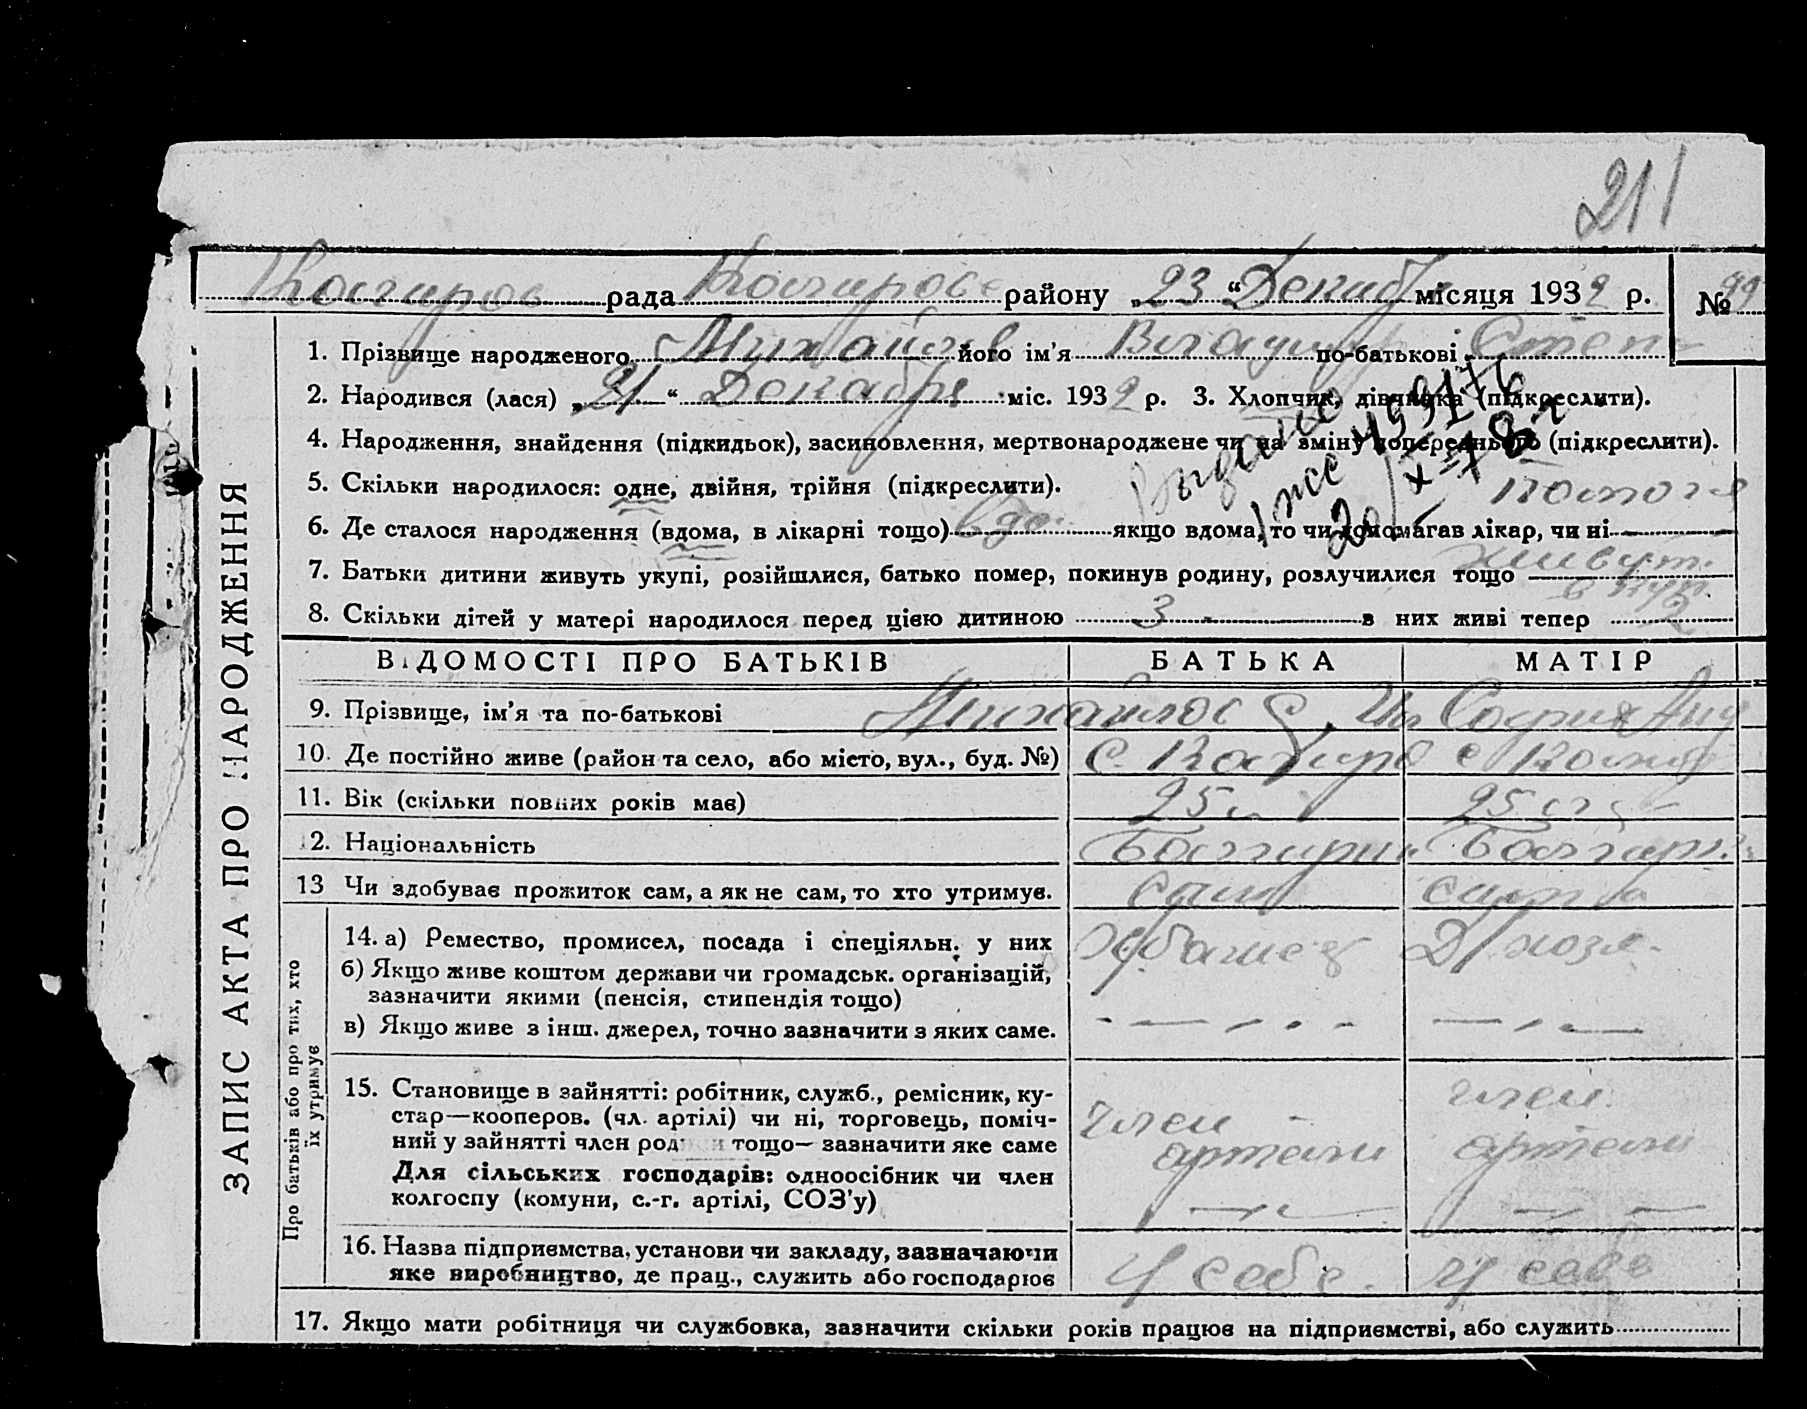 211
рада району „23“ Декабр місяця 1932 р. № 99
1. Прізвище народженого Михайлов його ім'я Владимир по-батькові Степ
2. Народився (лася) „21“ Декабря міс. 1932 р. 3. Хлопчик, дівчинка (підкреслити).
4. Народження, знайдення (підкидьок), засиновлення, мертвонароджене чи на зміну попереднього (підкреслити).
5. Скільки народилося: одне, двійня, трійня (підкреслити).
6. Де сталося народження (вдома, в лікарні тощо) якщо вдома, то чи допомагав лікар, чи ні
7. Батьки дитини живуть укупі, розійшлися, батько помер, покинув родину, розлучилися тощо живут
8. Скільки дітей у матері народилося перед цією дитиною 3 з них живі тепер 2
Видано
ЗАПИС АКТА ПРО НАРОДЖЕННЯ
ВІДОМОСТІ ПРО БАТЬКІВ БАТЬКА МАТІР
9. Прізвище, ім'я та по-батькові Михайлов С. Ив София Анд
10. Де постійно живе (район та село, або місто, вул., буд. №) с с
11. Вік (скільки повних років має) 25 25
12. Національність Болгарин Болгарк
13 Чи здобуває прожиток сам, а як не сам, то хто утримує. сам сама
Про батьків або про тих, хто їх утримує
14. а) Ремество, промисел, посада і спеціяльн. у них Хлбашец Д/хозя
б) Якщо живе коштом держави чи громадськ. організацій,
зазначити якими (пенсія, стипендія тощо)
в) Якщо живе з інш. джерел, точно зазначити з яких саме.
15. Становище в зайнятті: робітник, служб., ремісник, ку-
стар—кооперов. (чл. артілі) чи ні, торговець, поміч- член член
ний у зайнятті член родини тощо— зазначити яке саме артели артели
Для сільських господарів: одноосібник чи член
колгоспу (комуни, с.-г. артілі, СОЗ'у)
16. Назва підприємства, установи чи закладу, зазначаючи
яке виробництво, де прац., служить або господарює У себе У себе
17. Якщо мати робітниця чи службовка, зазначити скільки років працює на підприємстві, або служить